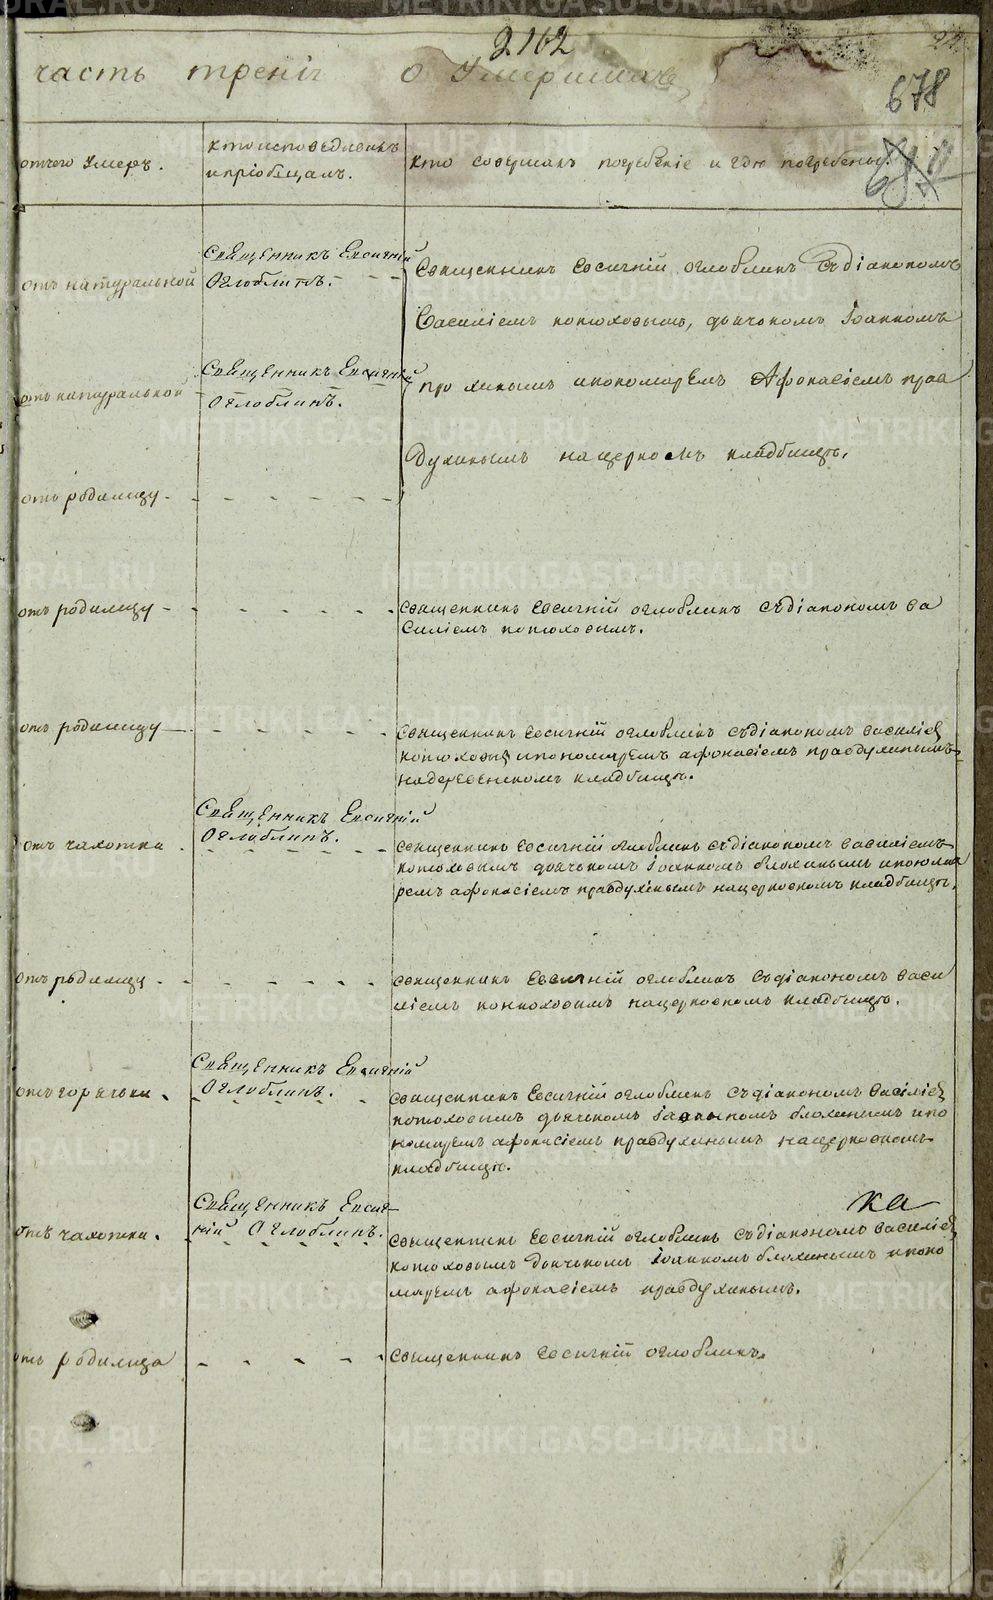 2162
678
часть третіѧ о Умершихъ
отчего Умеръ.
кто исповедывалъ
и пріобщалъ.
кто совершалъ погребеніе и где погребены.
отъ натуральной
Священникъ Евсигній
Оглоблинъ.
Священникъ Евсигній Оглоблинъ съ діакономъ
Василіемъ Конюховымъ, дьячкомъ Іоанномъ
отъ натуральной
Священникъ Евсигній
Оглоблинъ.
и пономаремъ Афонасіемъ Прав
духинымъ на церковномъ кладбищѣ.
отъ родимцу
отъ родимцу
священникъ Евсигній Оглоблинъ съ діакономъ Ва
силіемъ Конюховымъ.
отъ родимцу
священникъ Евсигній Оглоблинъ съ діакономъ Василіе
Конюховы и пономаремъ Афонасіемъ Правдухинымъ
на деревенскомъ кладбищѣ.
отъ чахотки
Священникъ Евсигній
Оглоблинъ.
священникъ Евсигній Оглоблинъ съ діакономъ Василіемъ
Конюховымъ дьячкомъ Іоанномъ Блохинымъ и понома
ремъ Афонасіемъ Правдухинымъ на церковномъ кладбищѣ.
отъ родимцу
священникъ Евсигній Оглоблинъ съ діакономъ Васи
ліемъ Конюховымъ на церковномъ кладбищѣ.
отъ горячки
Священникъ Евсигній
Оглоблинъ.
священникъ Евсигній Оглоблинъ съ діакономъ Василіе
Конюховымъ дьячкомъ Іоанномъ Блохинымъ и по
номаремъ Афонасіемъ Правдухинымъ на церковномъ
кладбищѣ.
ка
отъ чахотки.
Священникъ Евсиг
ній Оглоблинъ.
священникъ Евсигній Оглоблинъ съ діакономъ Василіе
Конюховымъ дьячкомъ Іоанномъ Блохинымъ и поно
маремъ Афонасіемъ Правдухинымъ.
отъ родимца
священникъ Евсигній Оглоблинъ.
METRIKI.GASO-URAL.RU